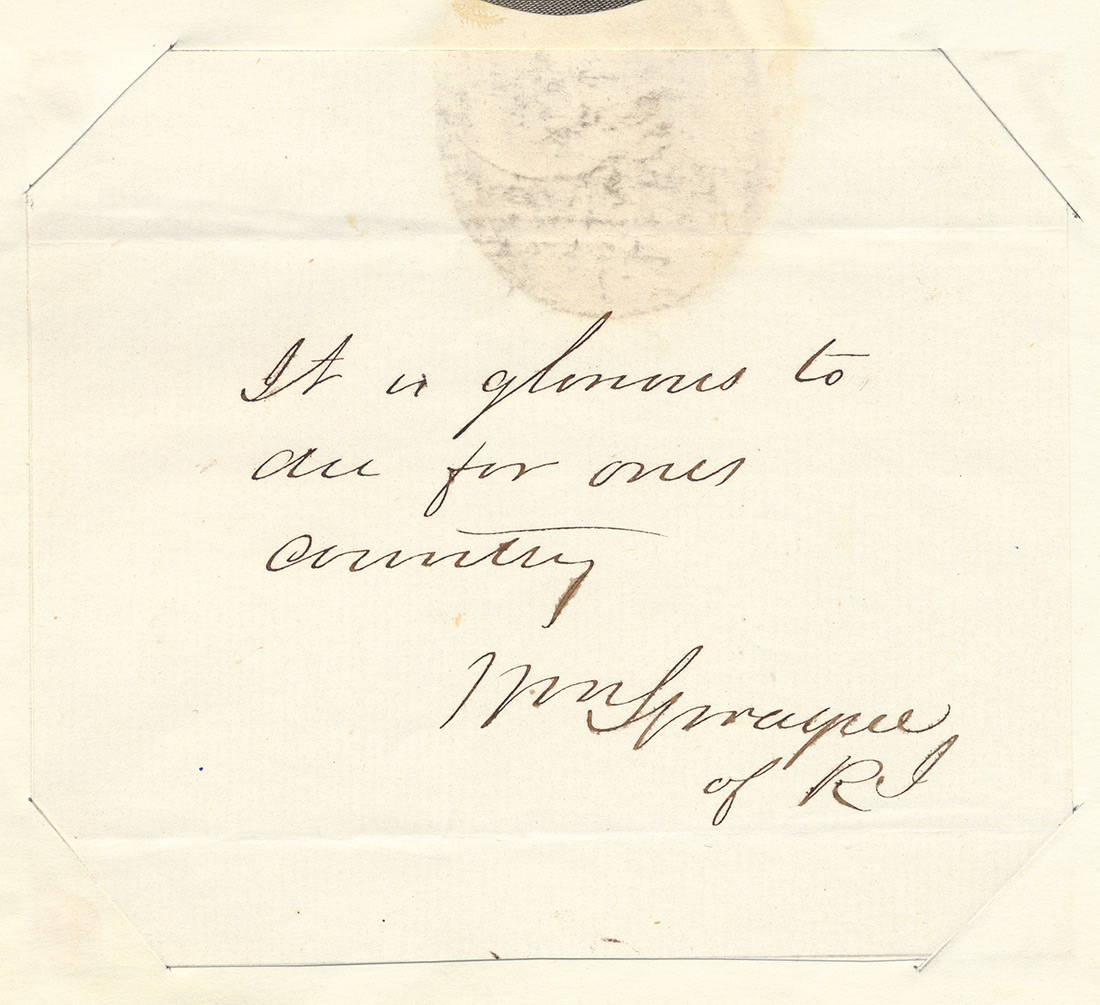 It is glorious to
die for ones
country
Wm Sprague
of RI